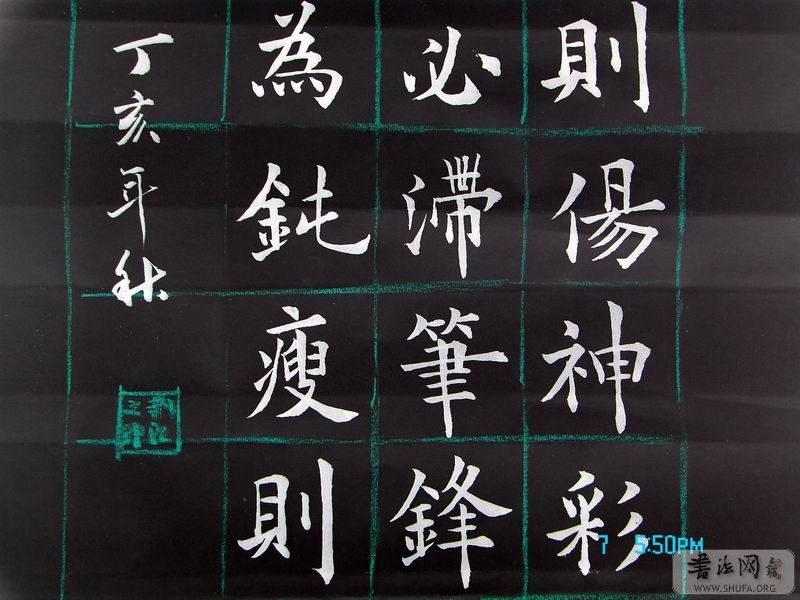 則傷神彩
必滞筆鋒
為鈍瘦則
丁亥年秋
7 5:50PM
书法网
WWW.SHUFA.ORG